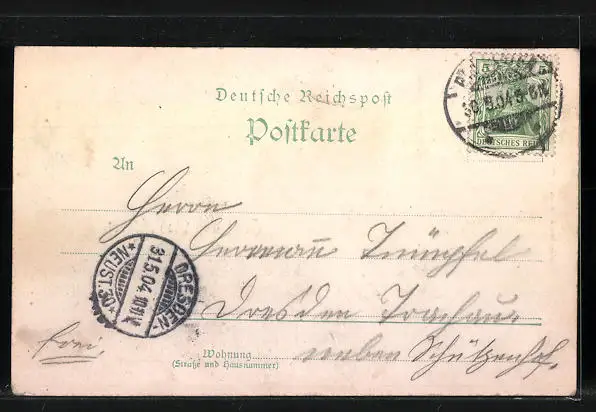 Deutsche Reichspost
Postkarte
An
Herrn
Herrmann Trümpfel
Dresden Trachau
neben Schützenhof.
frei
Wohnung
(Straße und Hausnummer)
DRESDEN-
31.5.04. 10-11V
*NEUST. 30*
5
DEUTSCHES REICH
30.5.04. 5-6N